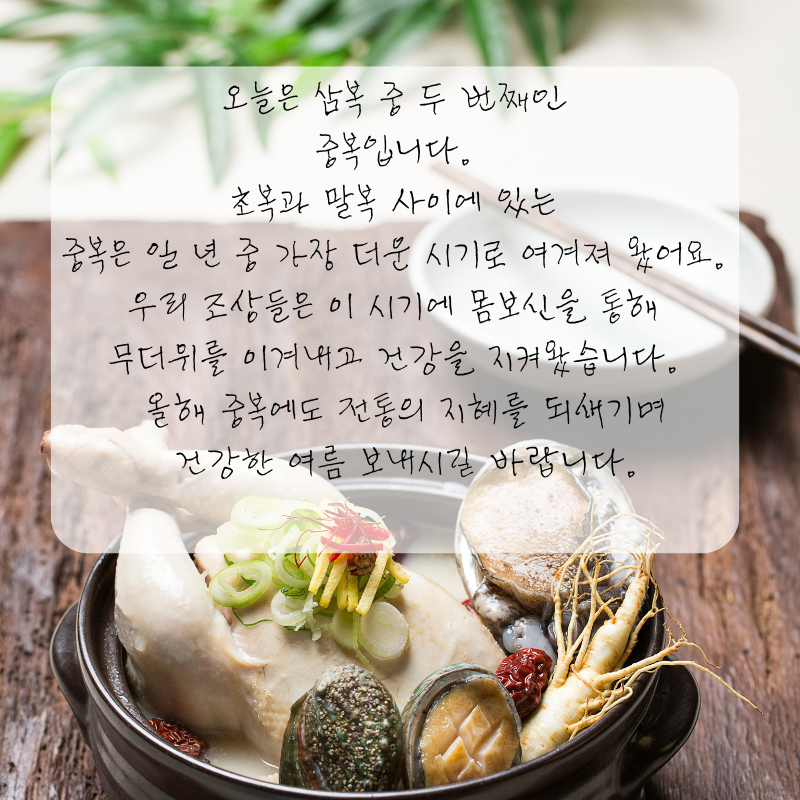 오늘은 삼복 중 두 번째인
중복입니다.
초복과 말복 사이에 있는
중복은 일 년 중 가장 더운 시기로 여겨져 왔어요.
우리 조상들은 이 시기에 몸보신을 통해
무더위를 이겨내고 건강을 지켜왔습니다.
올해 중복에도 전통의 지혜를 되새기며
건강한 여름 보내시길 바랍니다.